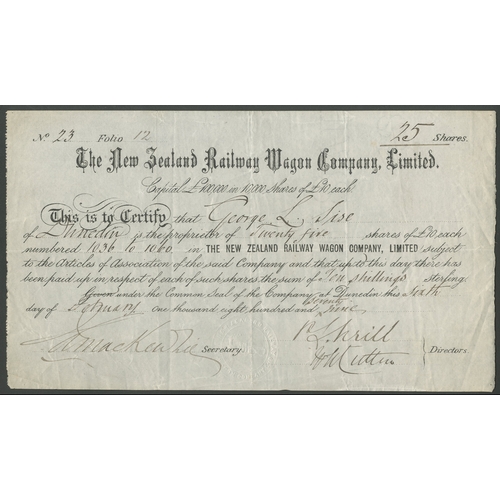 No. 23 Folio 12 25 Shares.
The New Zealand Railway Wagon Company, Limited.
Capital £100,000 in 10,000 Shares of £10 each
This is to Certify that George L. Sise
of Dunedin is the proprietor of Twenty five shares of £10 each
numbered 1636 to 1660 in THE NEW ZEALAND RAILWAY WAGON COMPANY, LIMITED subject
to the Articles of Association of the said Company and that up to this day there has
been paid up in respect of each of such shares, the sum of Ten shillings sterling
Given under the Common Seal of the Company at Dunedin this Sixth
day of February one thousand eight hundred and Seventy Nine
Secretary.
Directors.